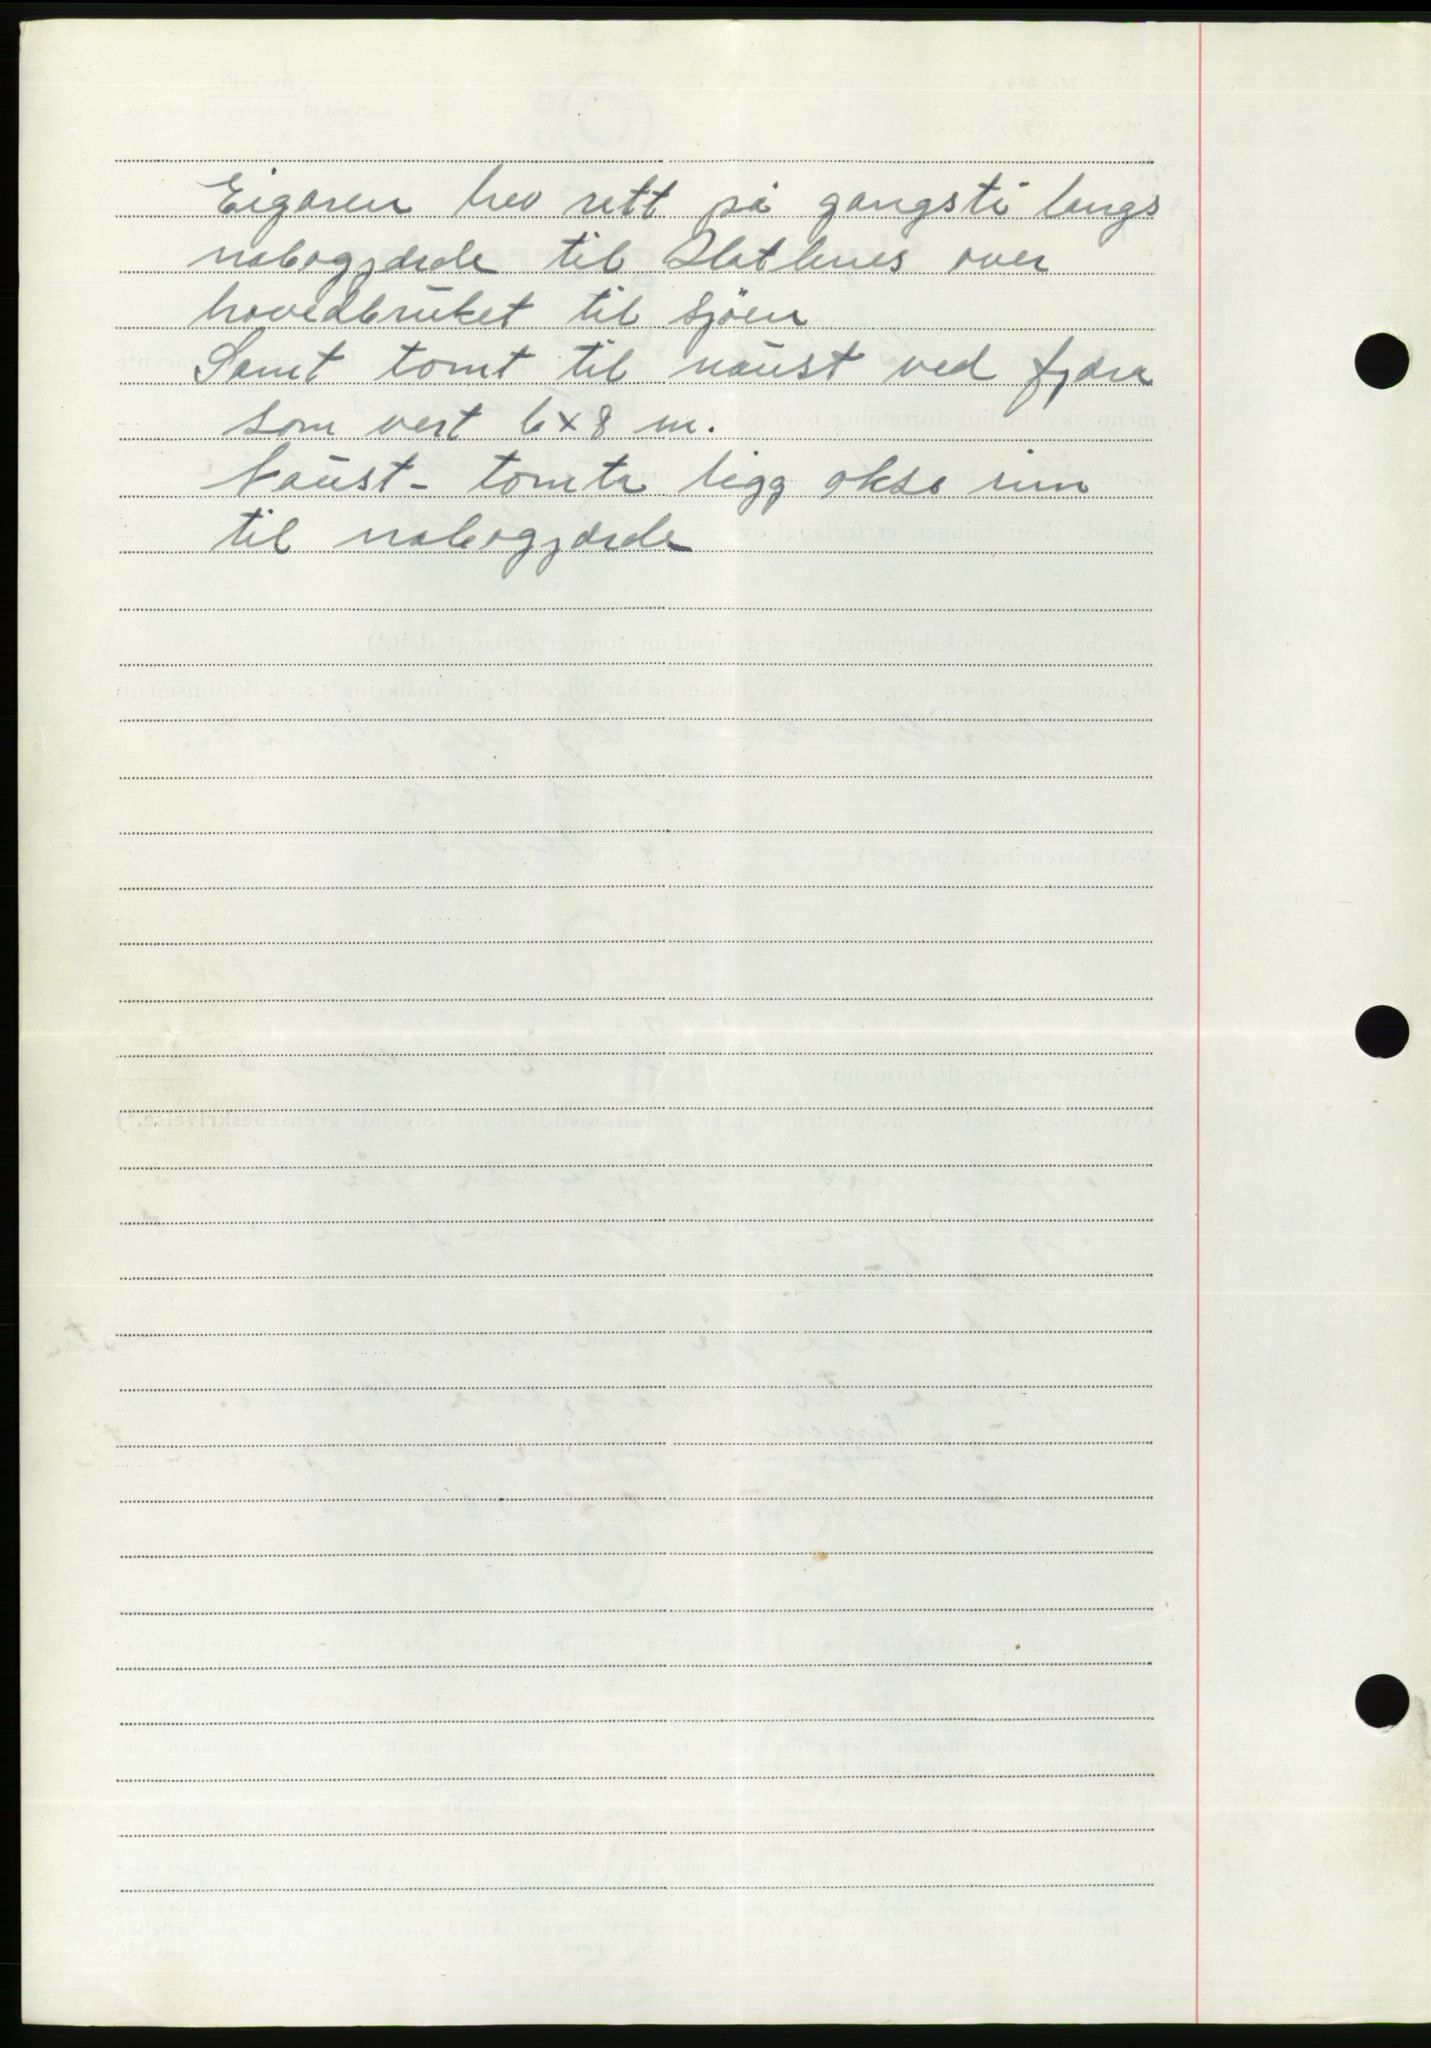 Eigaren hev rett på gangsti langs
nabogjerde til Hatlenes over
hovedbruket til Sjöen
Samt tomt til naust ved fjæra
som vert 6 x 8 m.
Naust- tomta ligg okso inn
til nabogjerde